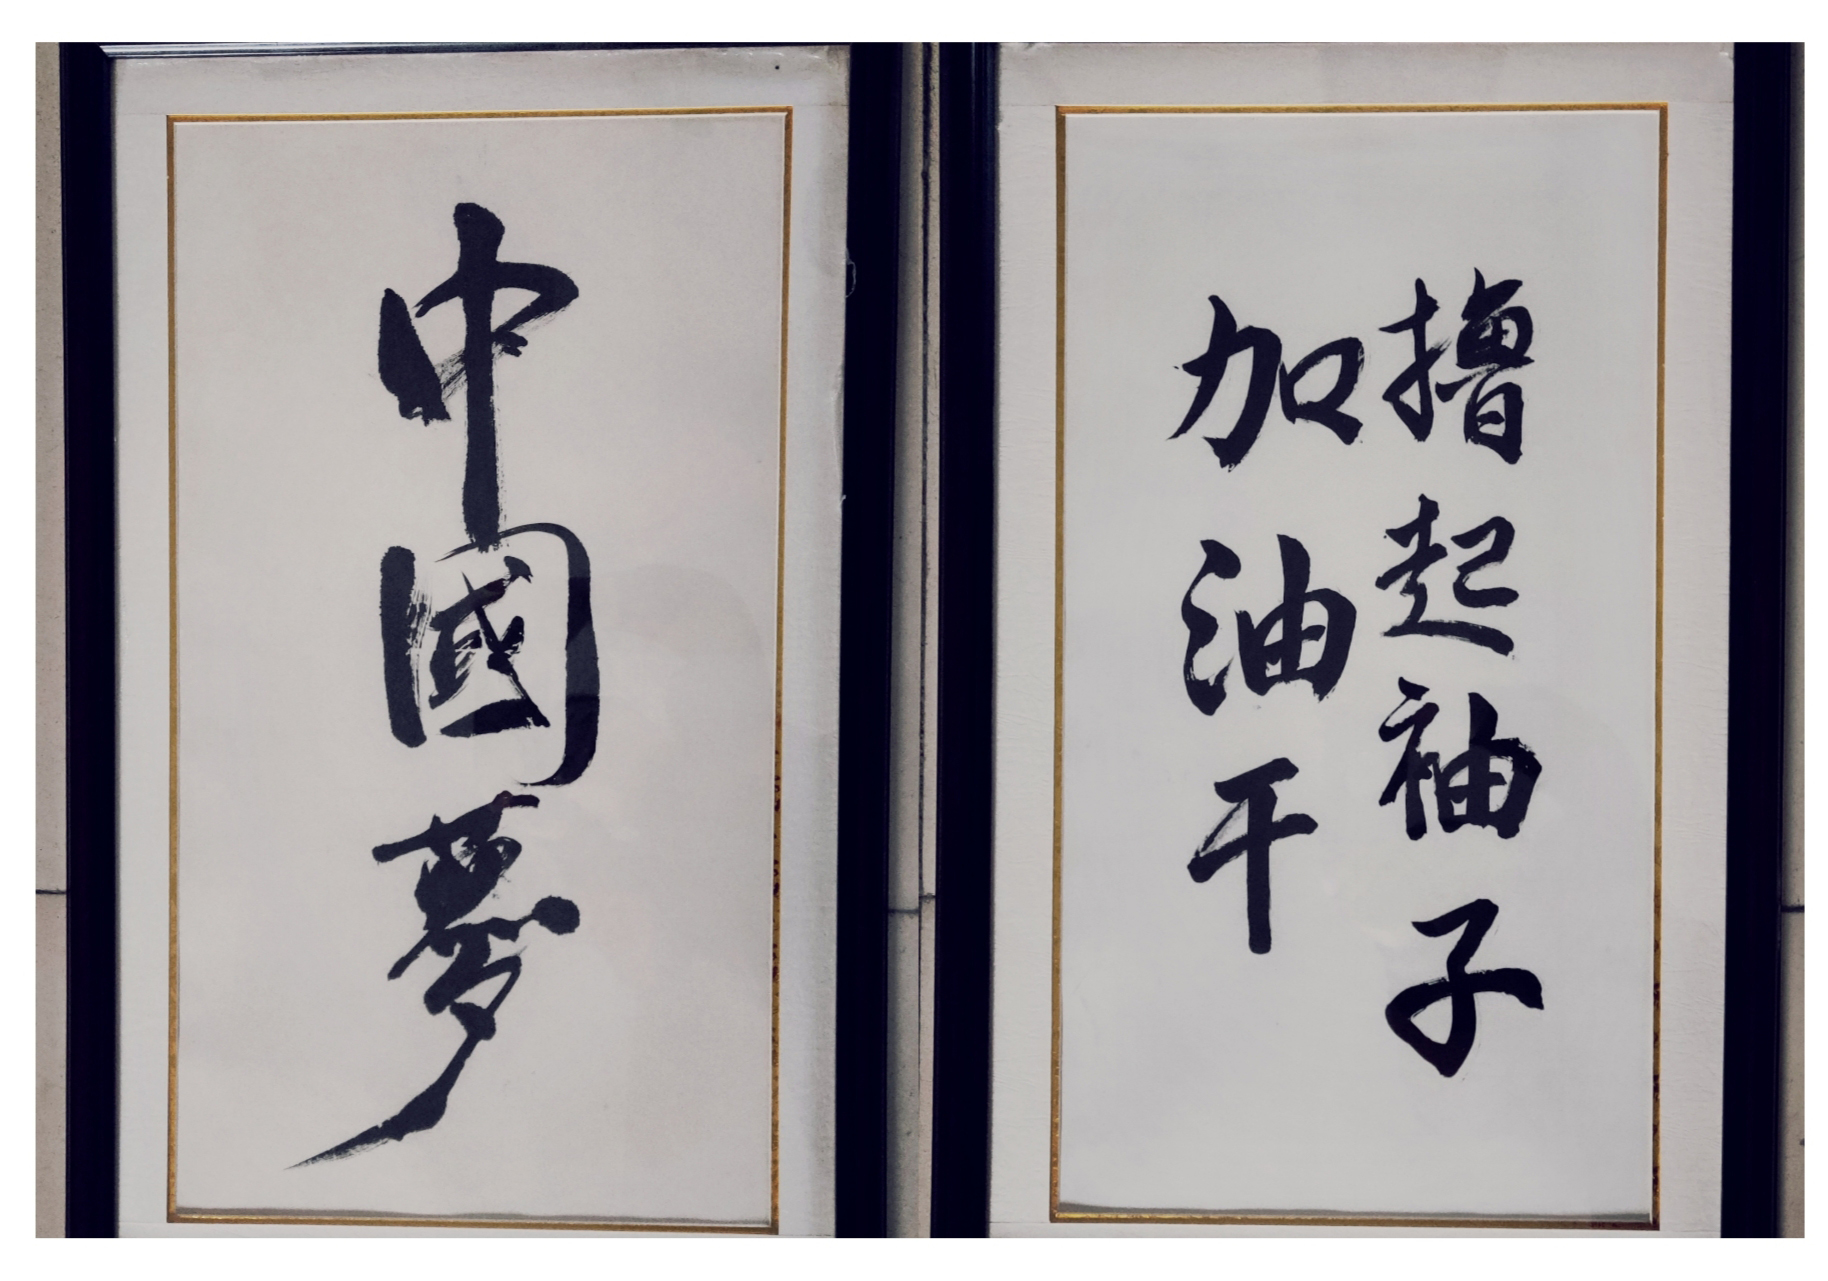 撸起袖子
加油干
中國夢